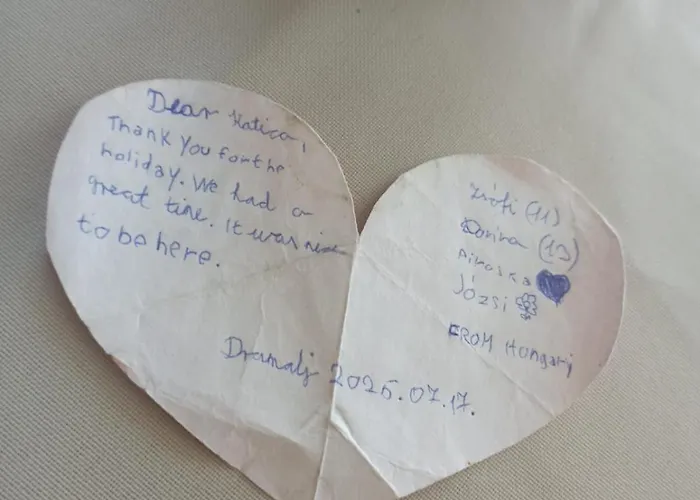 Dear Katica,
Thank you for the
holiday. We had a
great time. It was nice
to be here.
Zsófi (11)
Dorina (13)
Piroska
Józsi
FROM Hungary
Dramalj 2025.07.17.